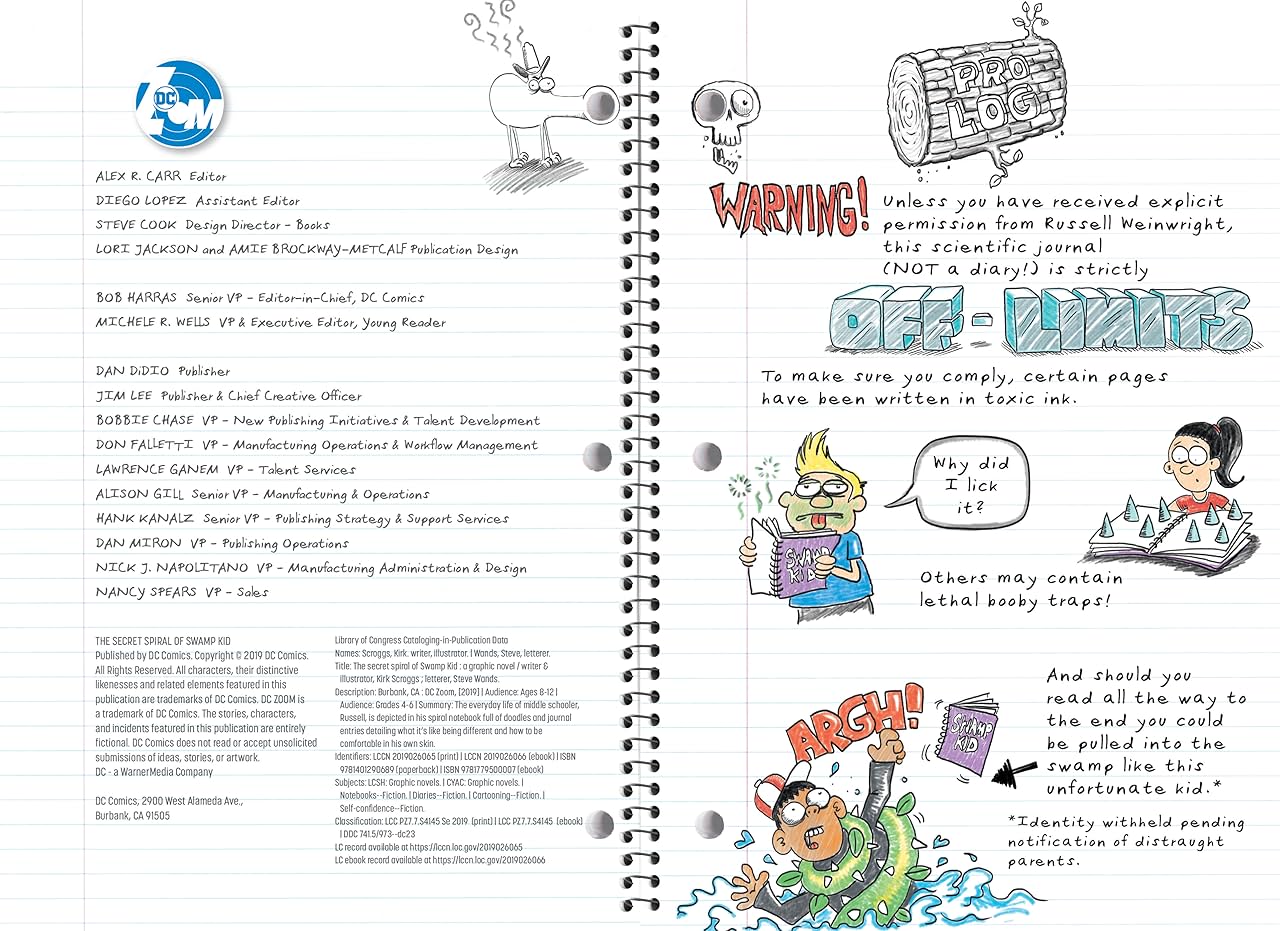 DC
ZOOM
ALEX R. CARR Editor
DIEGO LOPEZ Assistant Editor
STEVE COOK Design Director - Books
LORI JACKSON and AMIE BROCKWAY-METCALF Publication Design
BOB HARRAS Senior VP - Editor-in-Chief, DC Comics
MICHELE R. WELLS VP & Executive Editor, Young Reader
DAN DiDIO Publisher
JIM LEE Publisher & Chief Creative Officer
BOBBIE CHASE VP - New Publishing Initiatives & Talent Development
DON FALLETTI VP - Manufacturing Operations & Workflow Management
LAWRENCE GANEM VP - Talent Services
ALISON GILL Senior VP - Manufacturing & Operations
HANK KANALZ Senior VP - Publishing Strategy & Support Services
DAN MIRON VP - Publishing Operations
NICK J. NAPOLITANO VP - Manufacturing Administration & Design
NANCY SPEARS VP - Sales
THE SECRET SPIRAL OF SWAMP KID
Published by DC Comics. Copyright © 2019 DC Comics.
All Rights Reserved. All characters, their distinctive
likenesses and related elements featured in this
publication are trademarks of DC Comics. DC ZOOM is
a trademark of DC Comics. The stories, characters,
and incidents featured in this publication are entirely
fictional. DC Comics does not read or accept unsolicited
submissions of ideas, stories, or artwork.
DC - a WarnerMedia Company
DC Comics, 2900 West Alameda Ave.,
Burbank, CA 91505
Library of Congress Cataloging-in-Publication Data
Names: Scroggs, Kirk. writer, illustrator. | Wands, Steve, letterer.
Title: The secret spiral of Swamp Kid : a graphic novel / writer &
illustrator, Kirk Scroggs ; letterer, Steve Wands.
Description: Burbank, CA : DC Zoom, [2019] | Audience: Ages 8-12 |
Audience: Grades 4-6 | Summary: The everyday life of middle schooler,
Russell, is depicted in his spiral notebook full of doodles and journal
entries detailing what it's like being different and how to be
comfortable in his own skin.
Identifiers: LCCN 2019026065 (print) | LCCN 2019026066 (ebook) | ISBN
9781401290689 (paperback) | ISBN 9781779500007 (ebook)
Subjects: LCSH: Graphic novels. | CYAC: Graphic novels. |
Notebooks--Fiction. | Diaries--Fiction. | Cartooning--Fiction. |
Self-confidence--Fiction.
Classification: LCC PZ7.7.S4145 Se 2019 (print) | LCC PZ7.7.S4145 (ebook)
| DDC 741.5/973--dc23
LC record available at https://lccn.loc.gov/2019026065
LC ebook record available at https://lccn.loc.gov/2019026066
PRO
LOG
WARNING!
Unless you have received explicit
permission from Russell Weinwright,
this scientific journal
(NOT a diary!) is strictly
OFF-LIMITS
To make sure you comply, certain pages
have been written in toxic ink.
Why did
I lick
it?
SWAMP
KID
Others may contain
lethal booby traps!
ARGH!
SWAMP
KID
And should you
read all the way to
the end you could
be pulled into the
swamp like this
unfortunate kid.*
*Identity withheld pending
notification of distraught
parents.